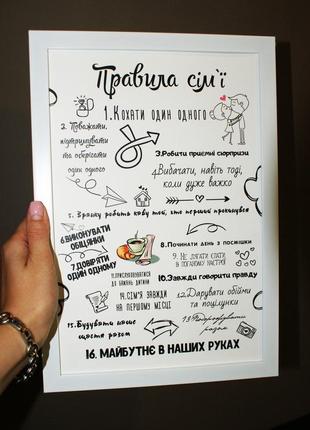 Правила сім'ї
1.Кохати один одного
2. Поважати,
підтримувати
та оберігати
один одного
3.Робити приємні сюрпризи
4.Вибачати, навіть тоді,
коли дуже важко
5. Зранку робить каву той, хто перший прокинувся
6.Виконувати
обіцянки
7.Довіряти
один одному
8.Починати день з посмішки
9. Не лягати спати
в поганому настрої
10.Завжди говорити правду
11.Прислуховуватися
до бажань дитини
12.Дарувати обійми
та поцілунки
14.Сім'я завжди
на першому місці
13.Подорожувати
разом
15.Будувати наше
щастя разом
16. МАЙБУТНЄ В НАШИХ РУКАХ